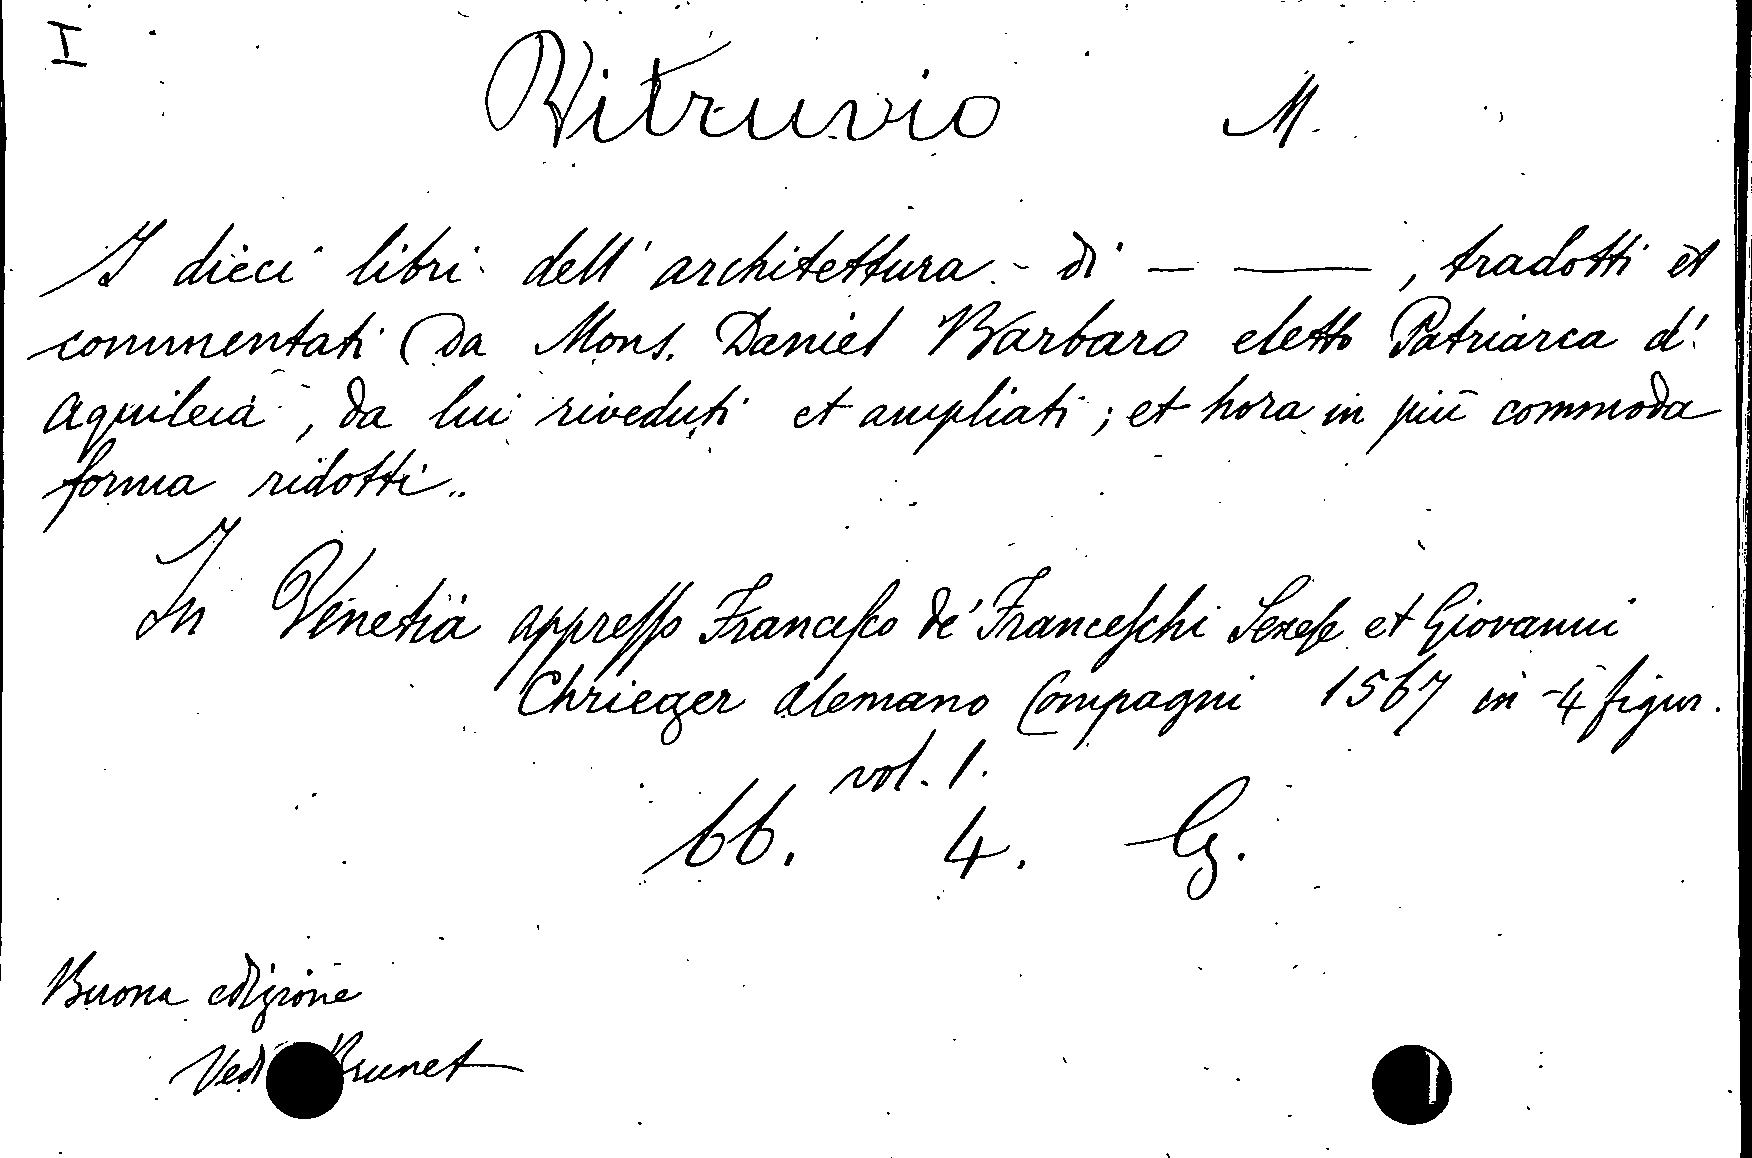 I
Vitruvio M.
I dieci libri dell' architettura - di — ——, tradotti et
commentati da Mons. Daniel Barbaro eletto Patriarca d'
Aquileia, da lui riveduti et ampliati; et hora in più commoda
forma ridotti..
In Venetia appresso Francesco de' Franceschi Senese et Giovanni
Chrieger Alemano Compagni 1567 in-4 figur.
vol. 1.
66. 4. G.
Buona edizione
Vedi Brunet